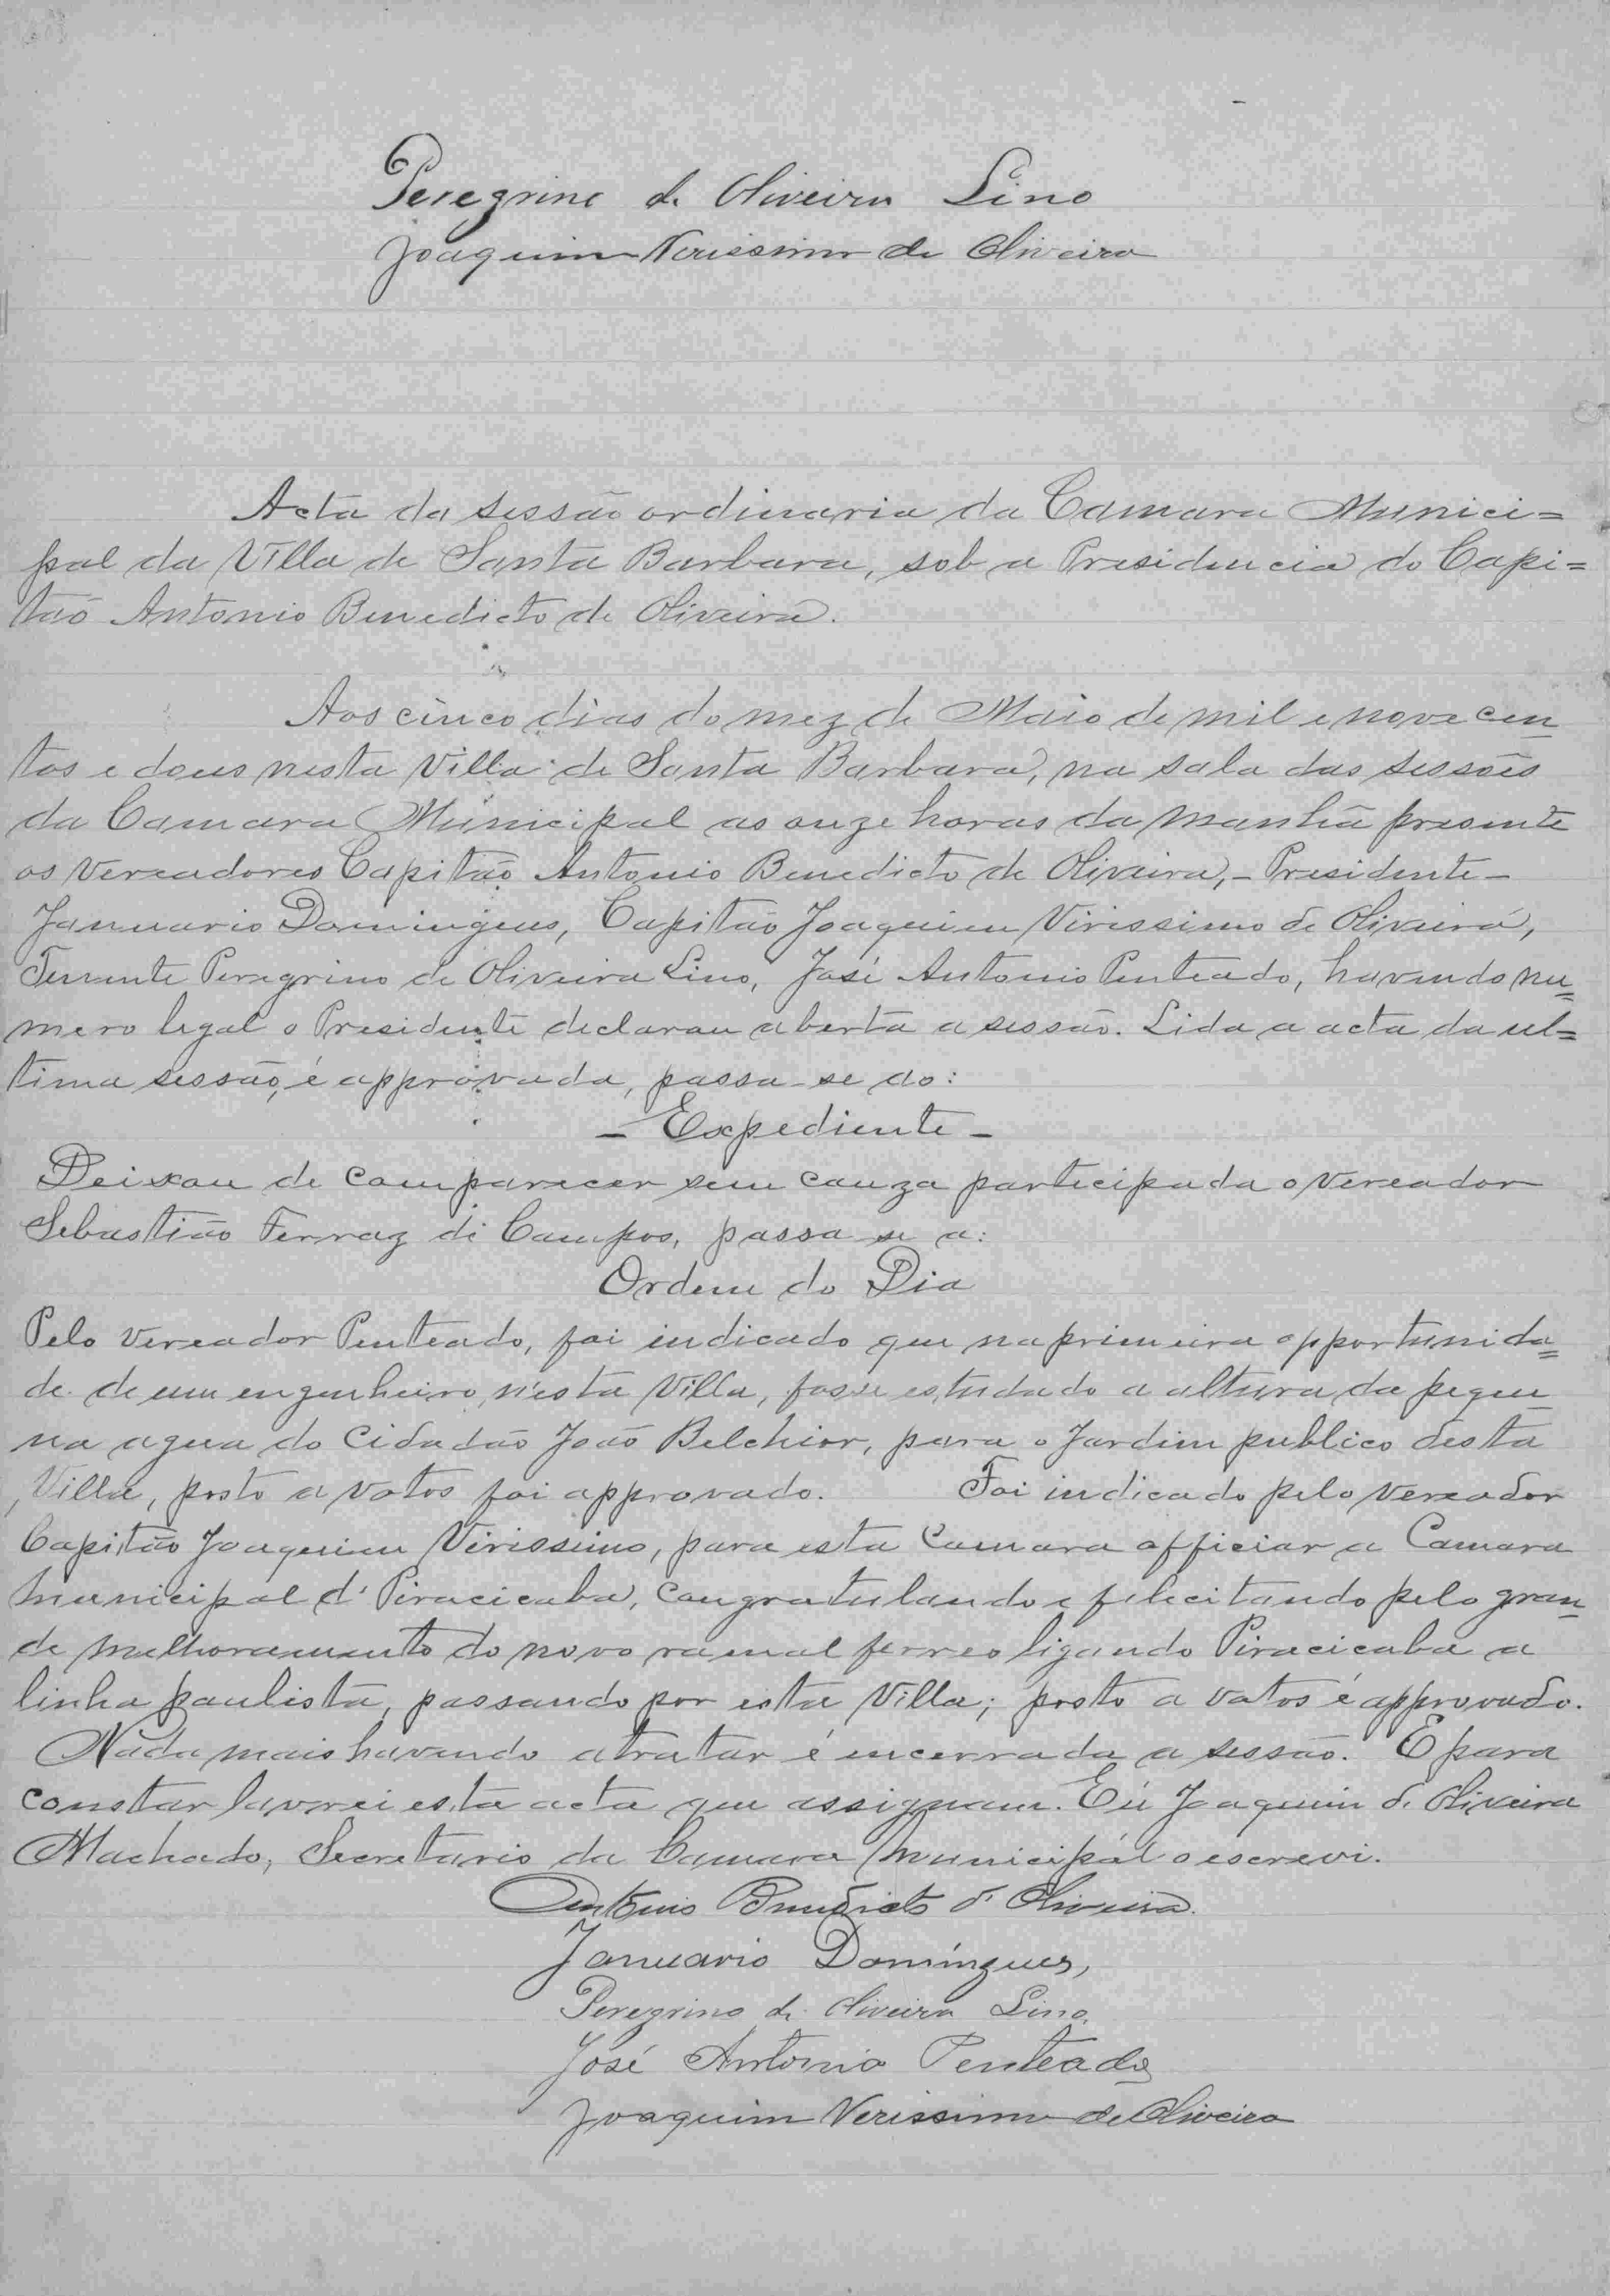 Peregrino de Oliveira Lino
Joaquim Verissimo de Oliveira
Acta da sessão ordinaria da Camara Munici=
pal da Villa de Santa Barbara, sob a Presidencia do Capi=
tão Antonio Benedicto de Oliveira.
Aos cinco dias do mez de Maio de mil e nove cen
tos e dous nesta Villa de Santa Barbara, na sala das sessões
da Camara Municipal as onze horas da manhã presente
os Vereadores Capitão Antonio Benedicto de Oliveira, - Presidente -
Januario Domingues, Capitão Joaquim Virissimo de Oliveira,
Tenente Peregrino de Oliveira Lino, José Antonio Penteado, havendo nu=
mero legal o Presidente declarou aberta a sessão. Lida a acta da ul=
tima sessão, é approvada, passa-se ao:
- Expediente -
Deixou de comparecer sem cauza participada o Vereador
Sebastião Ferraz de Campos, passa se a:
Ordem do Dia
Pelo Vereador Penteado, foi indicado que na primeira opportunida=
de de um engenheiro, n'esta Villa, fosse estudado a altura da peque
na agua do Cidadão João Belchior, para o Jardim publico desta
Villa, posto a votos foi approvado. Foi indicado pelo Vereador
Capitão Joaquim Virissimo, para esta Camara officiar a Camara
Municipal d' Piracicaba, congratulando e felicitando pelo gran
de melhoramento do novo ramal ferreo ligando Piracicaba a
linha paulista, passando por esta Villa; posto a votos é approvado.
Nada mais havendo a tratar é encerrada a sessão. E para
constar lavrei esta acta que assignam. Eu Joaquim d. Oliveira
Machado, Secretario da Camara Municipal o escrevi.
Antonio Benedicto d' Oliveira.
Januario Domingues,
Peregrino de Oliveira Lino.
José Antonio Penteado
Joaquim Verissimo de Oliveira